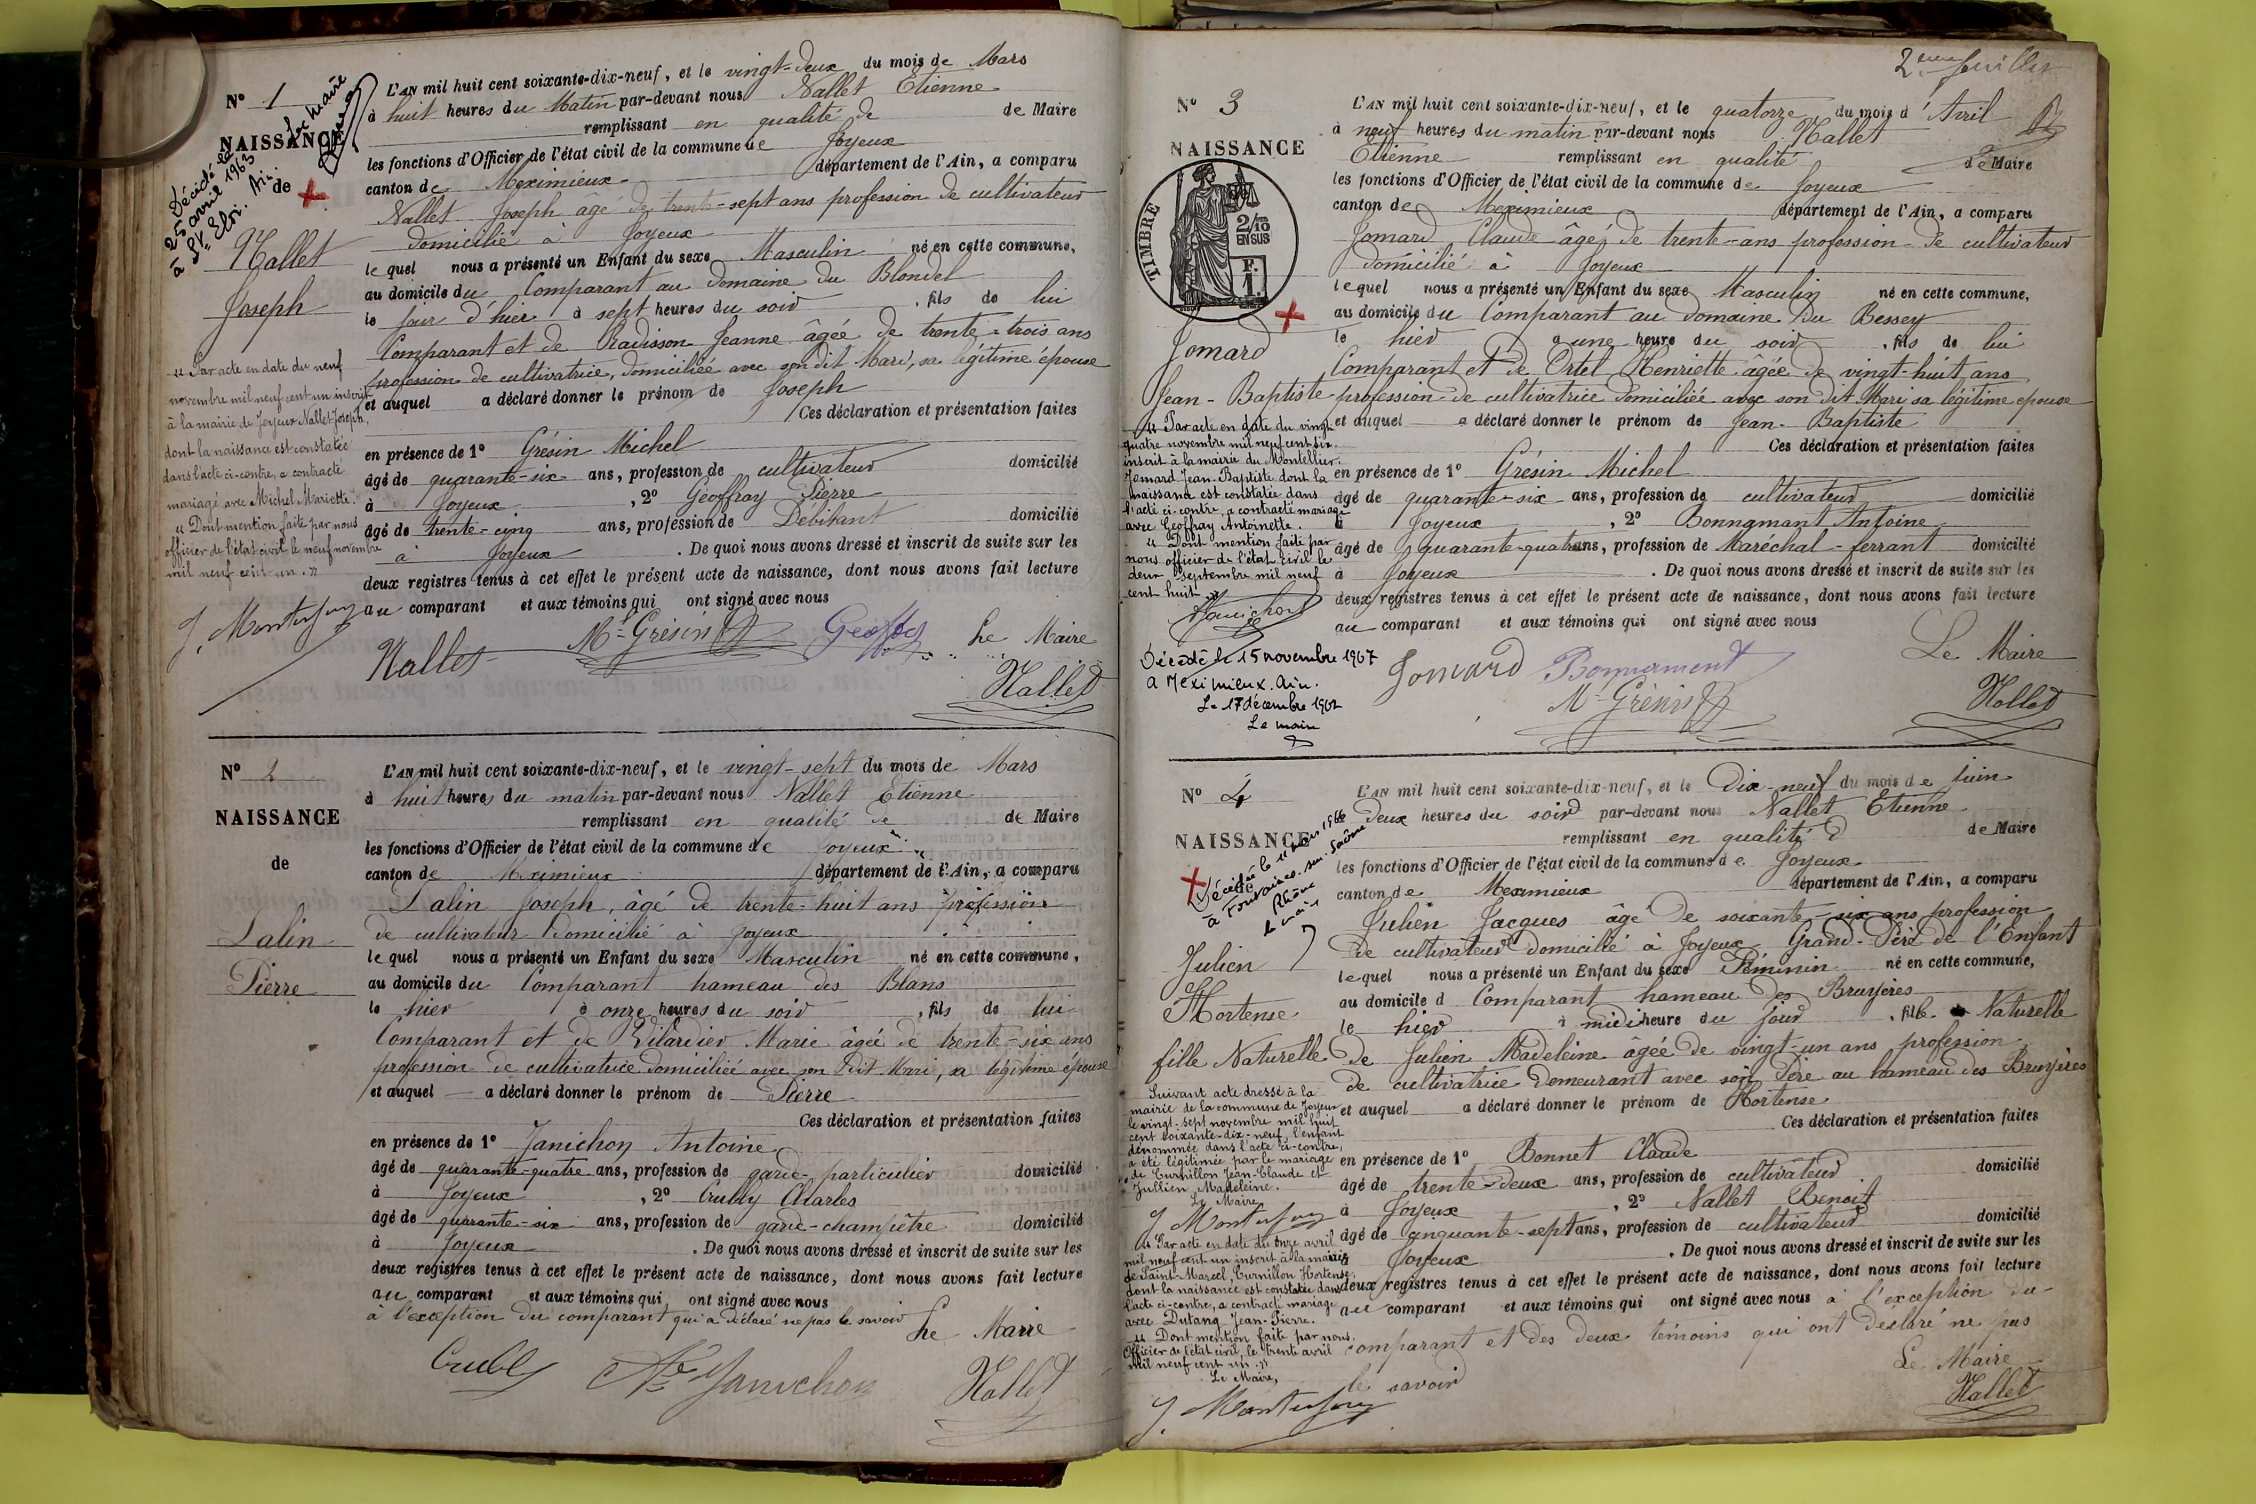 N° 1
NAISSANCE
de
Nallet
Joseph
Décédé le
25 avril 1963
à St Eloi. Ain.
Le Maire
L'AN mil huit cent soixante-dix-neuf, et le vingt-deux du mois de Mars
à huit heures du Matin par-devant nous Nallet Etienne
remplissant en qualité de de Maire
les fonctions d'Officier de l'état civil de la commune de Joyeux
canton de Meximieux département de l'Ain, a comparu
Nallet Joseph âgé de trente-sept ans profession de cultivateur
domicilié à Joyeux
lequel nous a présenté un Enfant du sexe Masculin né en cette commune,
au domicile du Comparant au domaine du Blondel
le jour d'hier à sept heures du soir, fils de lui
Comparant et de Radisson Jeanne âgée de trente-trois ans
profession de cultivatrice, domiciliée avec son dit Mari, sa légitime épouse
et auquel a déclaré donner le prénom de Joseph
Ces déclaration et présentation faites
en présence de 1° Grésin Michel
âgé de quarante-six ans, profession de cultivateur domicilié
à Joyeux, 2° Geoffray Pierre
âgé de trente-cinq ans, profession de Débitant domicilié
à Joyeux. De quoi nous avons dressé et inscrit de suite sur les
deux registres tenus à cet effet le présent acte de naissance, dont nous avons fait lecture
au comparant et aux témoins qui ont signé avec nous
Nallet Ml Grésin Geoffray Le Maire
Nallet
" Par acte en date du neuf
novembre mil neuf cent un inscrit
à la mairie de Joyeux Nallet Joseph,
dont la naissance est constatée
dans l'acte ci-contre, a contracté
mariage avec Michel Mariette.
" Dont mention faite par nous
officier de l'état civil le neuf novembre
mil neuf cent un. "
N° 2
NAISSANCE
de
Lalin
Pierre
L'AN mil huit cent soixante-dix-neuf, et le vingt-sept du mois de Mars
à huit heures du matin par-devant nous Nallet Etienne
remplissant en qualité de de Maire
les fonctions d'Officier de l'état civil de la commune de Joyeux
canton de Meximieux département de l'Ain, a comparu
Lalin Joseph, âgé de trente-huit ans profession
de cultivateur domicilié à Joyeux
lequel nous a présenté un Enfant du sexe Masculin né en cette commune,
au domicile du Comparant hameau des Blans
le hier à onze heures du soir, fils de lui
Comparant et de Marie âgée de trente-six ans
profession de cultivatrice domiciliée avec son dit Mari, sa légitime épouse
et auquel a déclaré donner le prénom de Pierre
Ces déclaration et présentation faites
en présence de 1° Janichon Antoine
âgé de quarante-quatre ans, profession de garde-particulier domicilié
à Joyeux, 2° Crubly Charles
âgé de quarante-six ans, profession de garde-champêtre domicilié
à Joyeux. De quoi nous avons dressé et inscrit de suite sur les
deux registres tenus à cet effet le présent acte de naissance, dont nous avons fait lecture
au comparant et aux témoins qui ont signé avec nous
à l'exception du comparant qui a déclaré ne pas le savoir Le Maire
Janichon Nallet
2eme feuillet
N° 3
NAISSANCE
TIMBRE
2/10
EN SUS
F.
1.
Jomard
Jean-Baptiste
L'AN mil huit cent soixante-dix-neuf, et le quatorze du mois d'Avril
à neuf heures du matin par-devant nous Nallet
Etienne remplissant en qualité de Maire
les fonctions d'Officier de l'état civil de la commune de Joyeux
canton de Meximieux département de l'Ain, a comparu
Jomard Claude âgé de trente-ans profession de cultivateur
domicilié à Joyeux
lequel nous a présenté un Enfant du sexe Masculin né en cette commune,
au domicile du Comparant au domaine du Bessey
le hier à une heure du soir, fils de lui
Comparant et de Ortel Henriette âgée de vingt-huit ans
profession de cultivatrice domiciliée avec son dit Mari sa légitime épouse
et auquel a déclaré donner le prénom de Jean-Baptiste
Ces déclaration et présentation faites
en présence de 1° Grésin Michel
âgé de quarante-six ans, profession de cultivateur domicilié
à Joyeux, 2° Bonnamant Antoine
âgé de quarante-quatre ans, profession de Maréchal-ferrant domicilié
à Joyeux. De quoi nous avons dressé et inscrit de suite sur les
deux registres tenus à cet effet le présent acte de naissance, dont nous avons fait lecture
au comparant et aux témoins qui ont signé avec nous
Le Maire
Jomard Bonnament
Ml Grésin Nallet
" Par acte en date du vingt
quatre novembre mil neuf cent six.
inscrit à la mairie du Montellier.
Jomard Jean-Baptiste dont la
naissance est constatée dans
l'acte ci-contre, a contracté mariage
avec Geoffray Antoinette.
" Dont mention faite par
nous officier de l'état civil le
deux septembre mil neuf
cent huit "
Décédé le 15 novembre 1967
à Meximieux. Ain.
Le 17 décembre 1967
Le maire
N° 4
NAISSANCE
de
Julien
Hortense
fille Naturelle
Décédée le 11
à Fontaines-sur-Saône
Rhône
Le maire
L'AN mil huit cent soixante-dix-neuf, et le Dix-neuf du mois de juin
à Deux heures du soir par-devant nous Nallet Etienne
remplissant en qualité d de Maire
les fonctions d'Officier de l'état civil de la commune de Joyeux
canton de Meximieux département de l'Ain, a comparu
Julien Jacques âgé de soixante-six ans profession
de cultivateur domicilié à Joyeux Grand-Père de l'Enfant
lequel nous a présenté un Enfant du sexe Féminin né en cette commune,
au domicile d Comparant hameau des Bruyères
le hier à midi heure du jour, fille Naturelle
de Julien Madeleine âgée de vingt-un ans profession
de cultivatrice demeurant avec son Père au hameau des Bruyères
et auquel a déclaré donner le prénom de Hortense
Ces déclaration et présentation faites
en présence de 1° Bonnet Claude
âgé de trente-deux ans, profession de cultivateur domicilié
à Joyeux, 2° Nallet Benoit
âgé de cinquante-sept ans, profession de cultivateur domicilié
à Joyeux. De quoi nous avons dressé et inscrit de suite sur les
deux registres tenus à cet effet le présent acte de naissance, dont nous avons fait lecture
au comparant et aux témoins qui ont signé avec nous à l'exception du
comparant et des deux témoins qui ont déclaré ne pas
le savoir Le Maire
Nallet
Suivant acte dressé à la
mairie de la commune de Joyeux
le vingt-sept novembre mil huit
cent soixante-dix-neuf, l'enfant
dénommée dans l'acte ci-contre,
a été légitimée par le mariage
de Curnillon Jean-Claude et
Jullien Madeleine.
Le Maire,
" Par acte en date du onze avril
mil neuf cent un inscrit à la mairie
de Saint-Marcel, Curnillon Hortense,
dont la naissance est constatée dans
l'acte ci-contre, a contracté mariage
avec Dutang Jean-Pierre.
" Dont mention faite par nous,
Officier de l'état civil, le trente avril
mil neuf cent un. "
Le Maire,